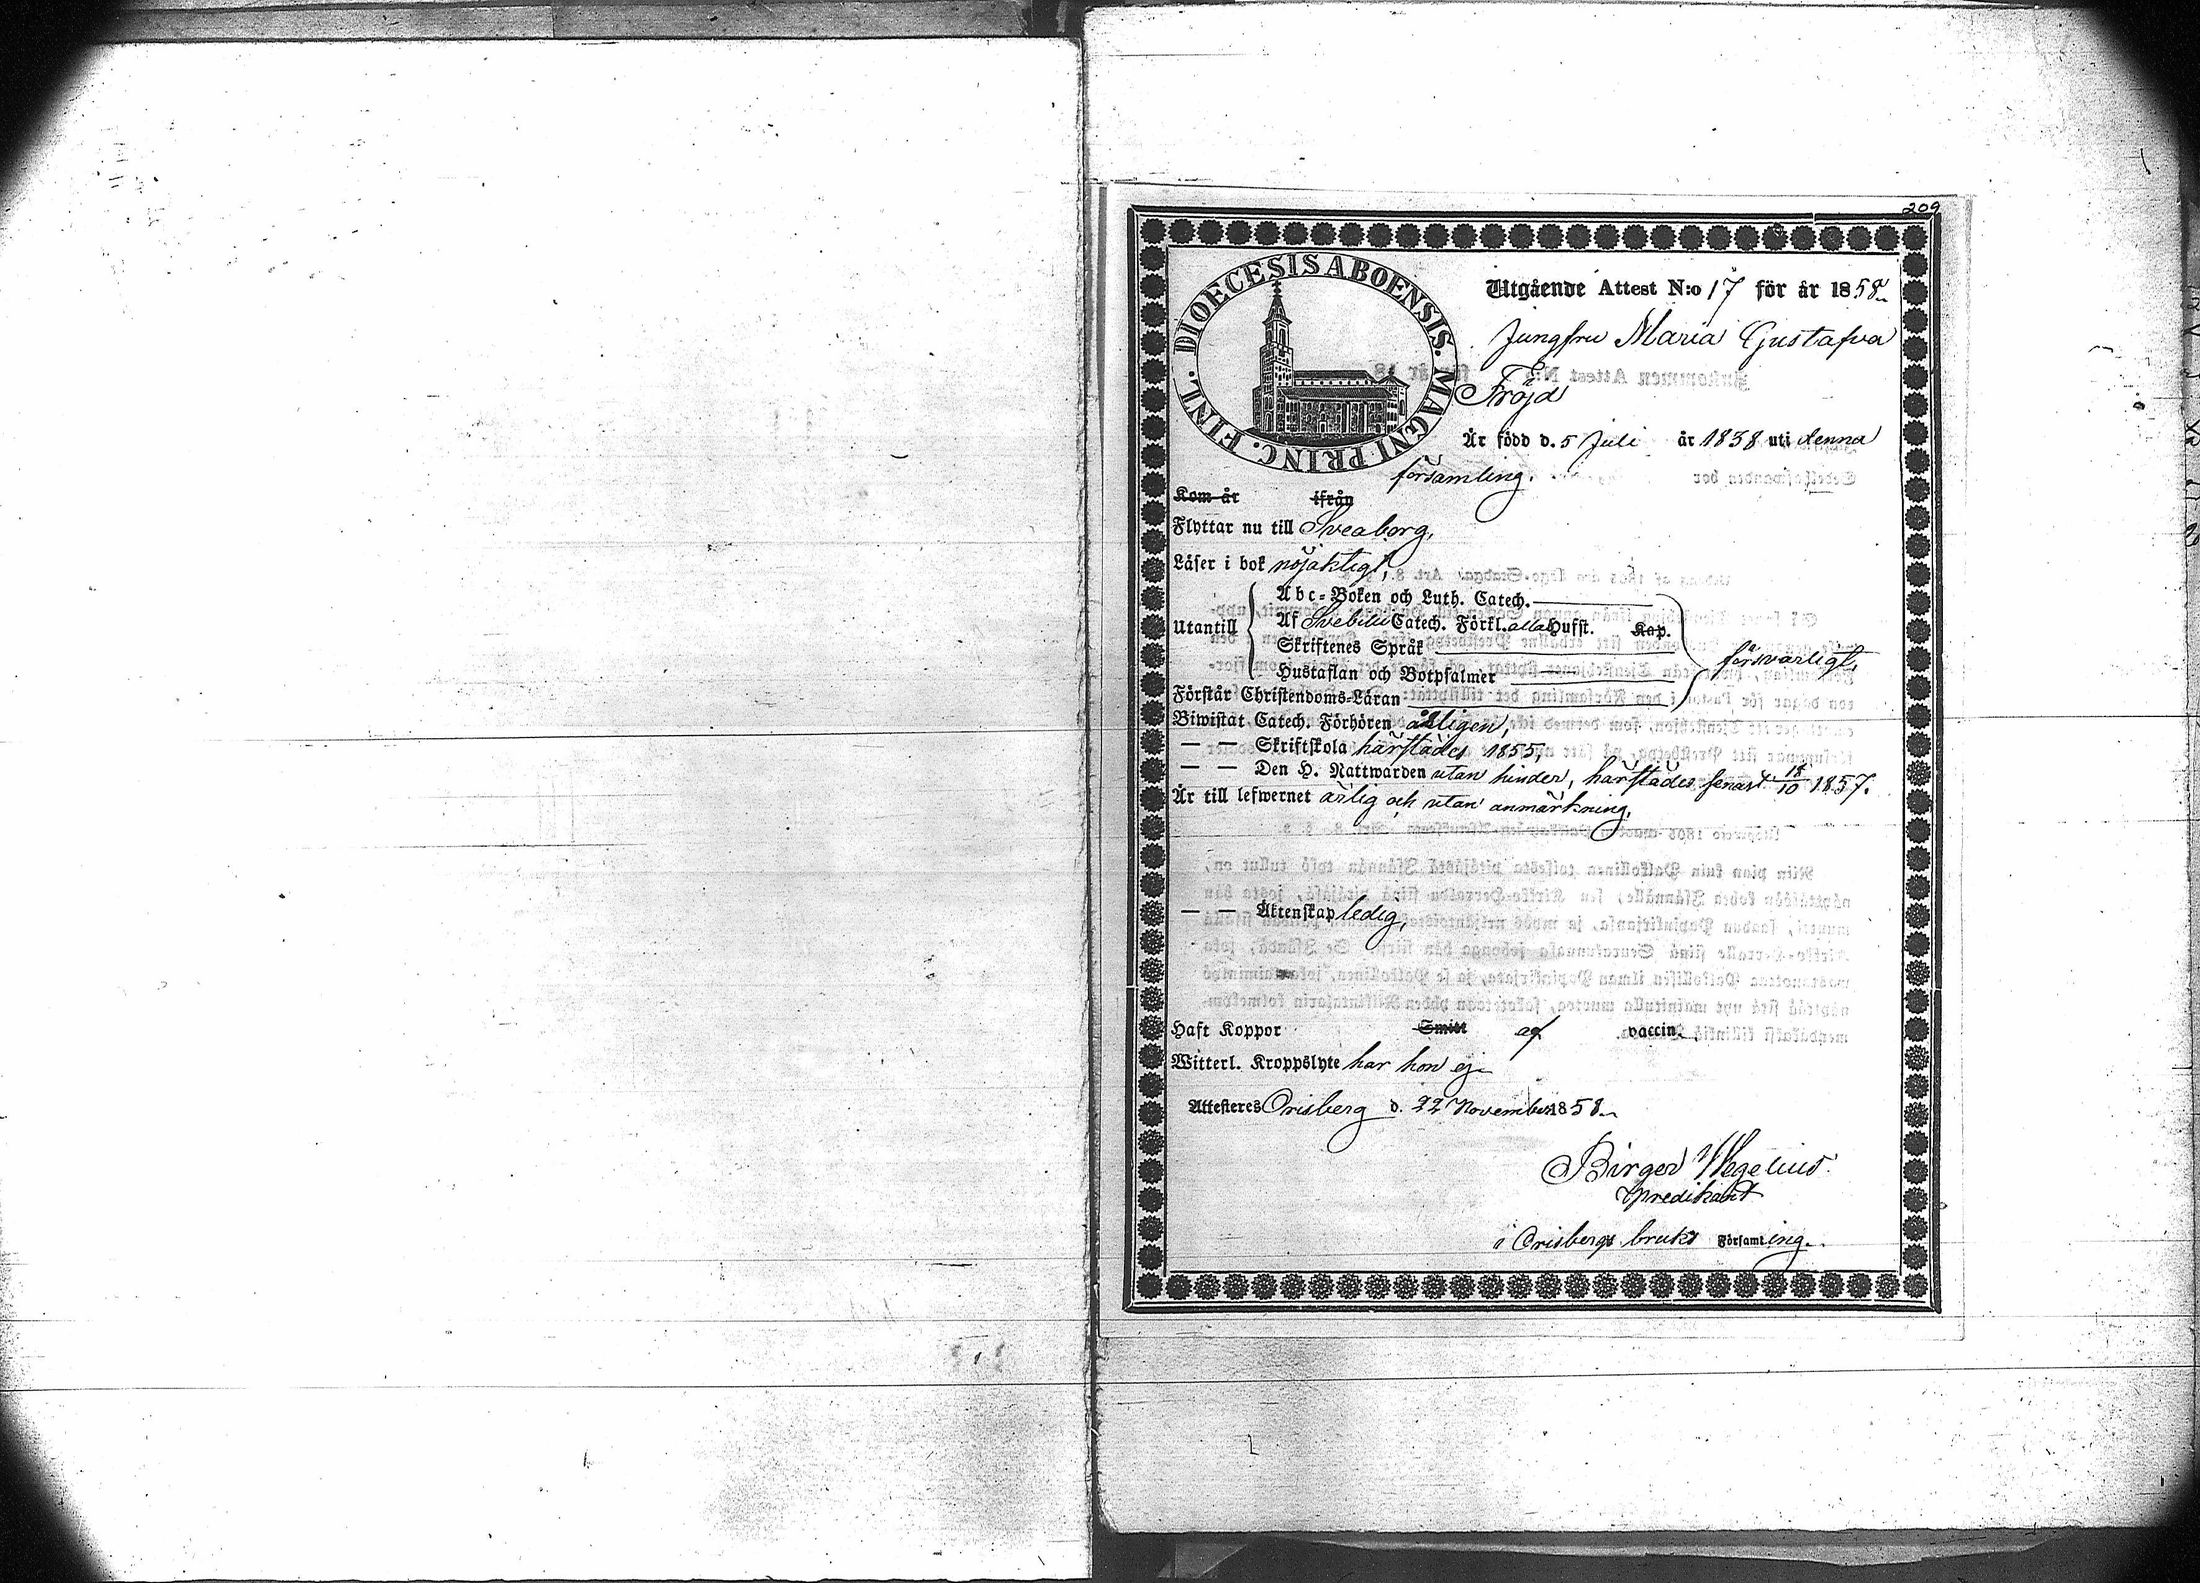 209
DIOECESIS ABOENSIS. MAGNI PRINC. FINL.
Utgående Attest N:o 17 för år 1858
Jungfru Maria Gustafva
Fröjd
Är född d. 5 Juli år 1838 uti denna
församling.
Kom år ifrån
Flyttar nu till Sveaborg,
Läser i bok nöjaktigt,
Utantill
Abc-Boken och Luth. Catech.
Af Svebilii Catech. Förkl. alla Hufst. Kap.
Skriftenes Språk
försvarligt,
Hustaflan och Botpsalmer
Förstår Christendoms-Läran
Biwistat Catech. Förhören årligen,
— — Skriftskola härstädes 1855,
— — Den H. Nattwarden utan hinder, härstädes senast 18/10 1857.
Är till lefwernet ärlig och utan anmärkning,
— — Äktenskap ledig,
Haft Koppor Smitt af vaccin.
Witterl. Kroppslyte har hon ej
Attesteres Orisberg d. 22 November 1858
Birger Wegelius
Predikant
i Orisbergs bruks Församling.